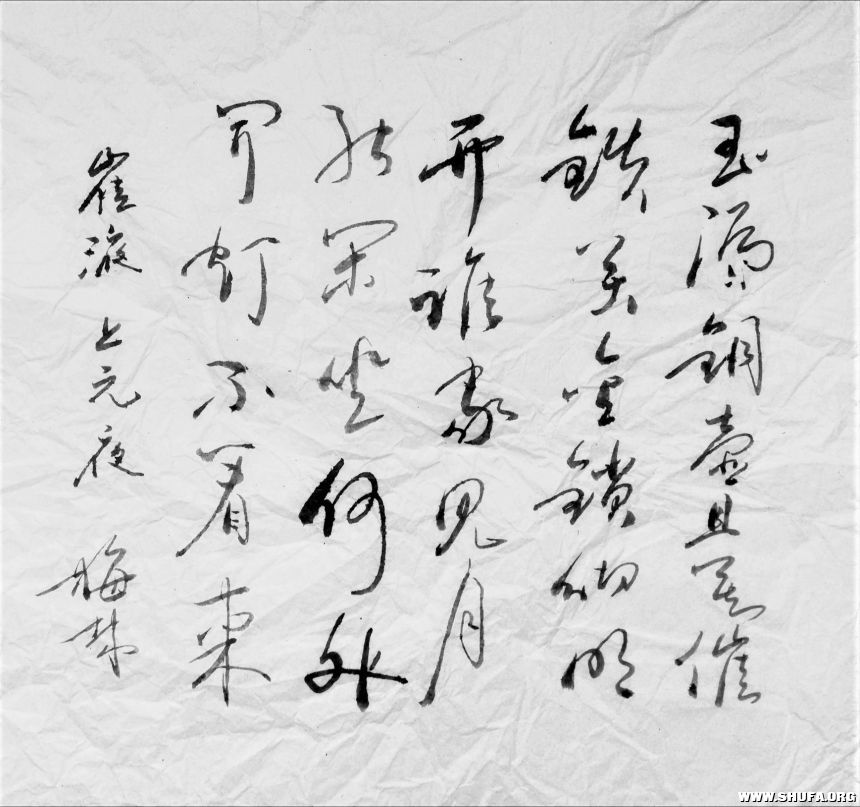 玉漏銅壺且莫催
鐵关金鎖彻明
开誰家見月
能闲坐何处
闻灯不看來
崔液上元夜 梅
WWW.SHUFA.ORG